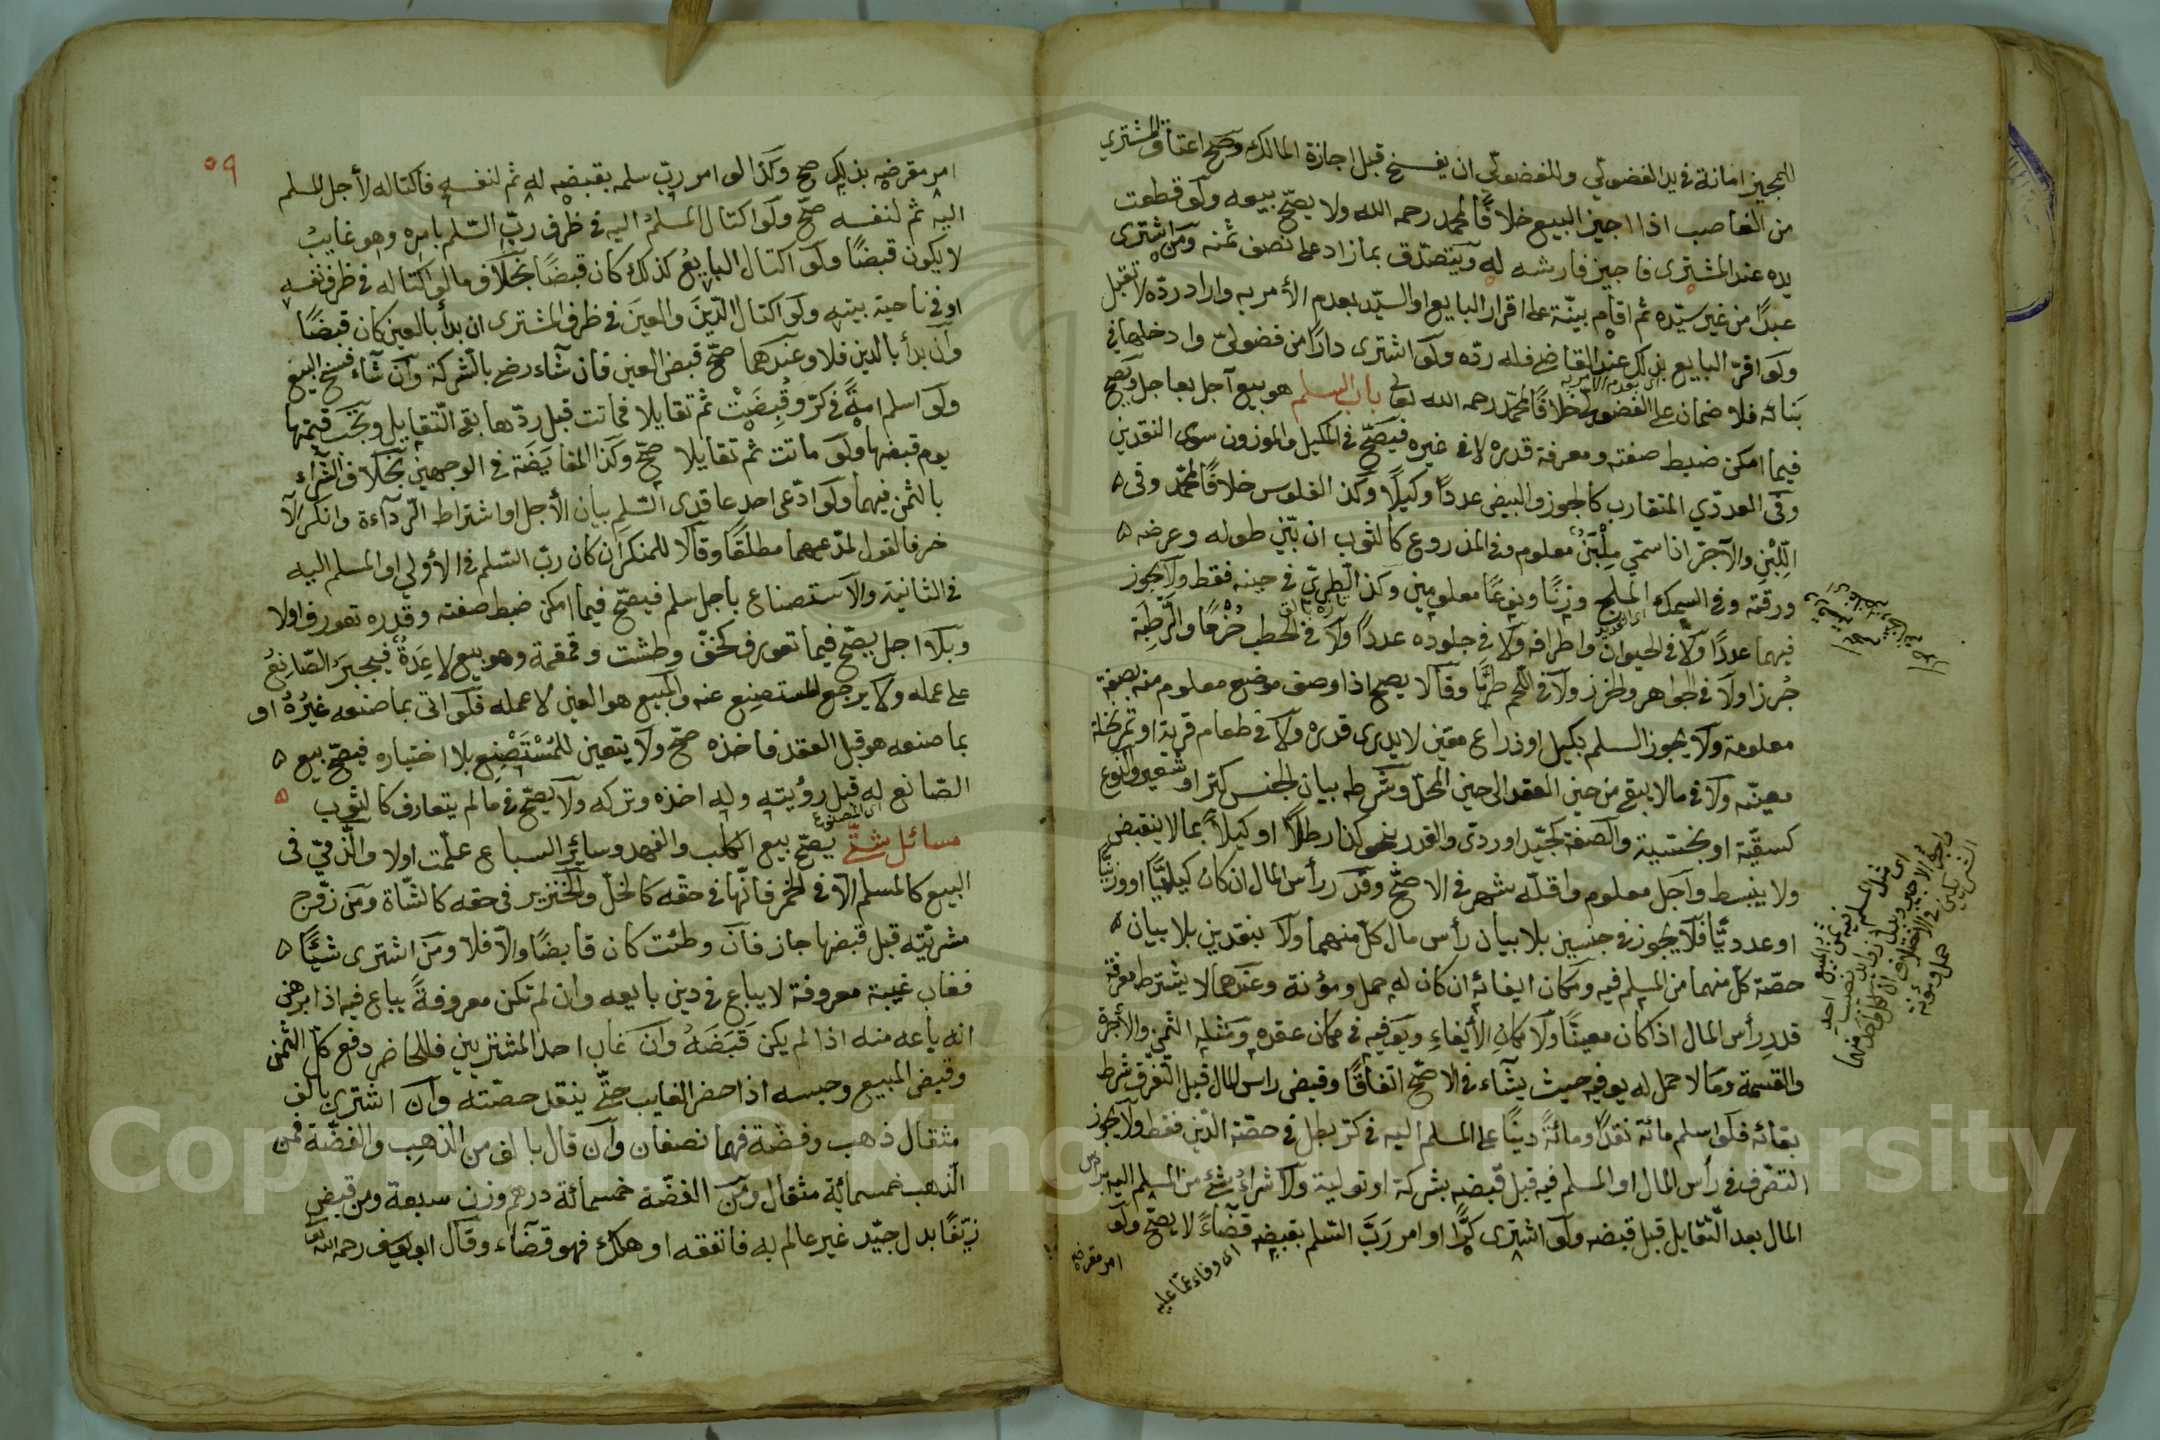 للمجيز امانة في يد الفضولي وللفضولي ان يفسخ قبل اجازة المالك وصح اعتاق المشتري
من الغاصب اذا اجيز البيع خلافًا لمحمد رحمه الله ولا يصحّ بيعه ولو قطعت
يده عند المشتري فاجيز فارشه له ويتصدّق بمازاد على نصف ثمنه ومن اشترى
عبدًا من غير سيّده ثم اقام بيّنة على اقرار البايع او السيّد بعدم الأمر به واراد ردّه لا تقبل
ولو اقرّ البايع بذلك عند القاضي فله ردّه ولو اشترى دارًا من فضوليّ وادخلها في
بنائه فلا ضمان على الفضولي خلافًا لمحمّد رحمه الله تعالى باب السلم هو بيع آجل بعاجل ويصح
فيما امكن ضبط صفته ومعرفة قدره لا في غيره فيصحّ في المكيل والموزون سوى النقدين
وفي العددّي المتقارب كالجوز والبيض عددًا وكيلًا وكذا الفلوس خلافًا لمحمّد وفي ه
اللّبِن والآجرّ اذا سمّي مِلْبَنٌ معلوم وفي المذروع كالثوب ان بيّن طوله وعرضه ه
ورقعته وفي السمك المليح وزنًا ونوعًا معلومين وكذا الطريّ في حينه فقط ولا يجوز
فيهما عددًا ولا في الحيوان واطرافه ولا في جلوده عددًا ولا في الحطب حُزمًا والرّطبة
جُرزا ولا في الجواهر والخرز ولا في اللّحم طريًّا وقالا يصح اذا وصف موضع معلوم منه بصفة
معلومة ولا يجوز السلم بكيل او ذراع معيّن لا يدرى قدره ولا في طعام قرية او تمر نخلة
معينّه ولا في مالا يبقى من حين العقد الى حين المحلّ وشرطه بيان الجنس كبّر او شعير والنوع
كسقيّة او بخسّية والصّفة كجيّد او رديّ والقدر نحو كذا رطلًا او كيلاً بما لا ينقبض
ولا ينبسط وآجل معلوم واقلّه شهر في الاصحّ وقدر رأس المال ان كان كيليًّا او وزنيًّا
او عدديًّا فلا يجوز في جنسين بلا بيان رأس مال كلّ منهما ولا بنقدين بلا بيان ه
حصّة كل منهما من المسلم فيه ومكان ايفائه ان كان له حمل ومؤنة وعندهما لا يشترط معرفة
قدر رأس المال اذا كان معينًا ولا مكان الأيفاء ويوفيه في مكان عقده ومثله الثمن والأجرة
والقسمة وما لا حمل له يوفيه حيث يشاء في الاصحّ اتفاقًا وقبض راس المال قبل التفرّق شرط
بقائه فلو اسلم مائة نقدًا ومائةً دينًا على المسلم اليه في كرّ بطل في حصّة الدّين فقط ولا يجوز
التصّرف في رأس المال او المسلم فيه قبل قبضه بشركة او تولية ولا شراءُ شيءٍ من المسلم اليه براس
المال بعد التّقايل قبل قبضه ولو اشترى كرًّا او امر ربّ السّلم بقبضه قضاءً لا يصحّ ولو
امر مقرضه
اى وفاء عمّا عليه
٥٩
امر مقرضه بذلك صح وكذا لو امر ربّ سلمه بقبضه له ثم لنفسه فاكتاله لأجل المسلم
اليه ثم لنفسه صحّ ولو اكتال المسلم اليه في ظرف ربّ السّلم بامره وهو غايب
لا يكون قبضًا ولو اكتال البايع كذلك كان قبضًا بخلاف مالو اكتاله في ظرف نفسه
او في ناحية بيته ولو اكتال الدّين والعين في ظرف المشترى ان بدأ بالعين كان قبضًا
وان بدأ بالدين فلا وعندهما صحّ قبض العين فان شاء رضي بالشركة وان شاء فسخ البيع
ولو اسلم امةً في كرّ وقُبِضَتْ ثم تقايلا فماتت قبل ردّها بقي التّقايل وتجب قيمتها
يوم قبضها ولو ماتت ثم تقايلا صحّ وكذا المقايضة في الوجهين بخلاف الشراء
بالثمن فيهما ولو ادّعى احد عاقدي السّلم بيان الأجل او اشتراط الرّدآءة وانكر الآ
خر فالقول لمدّعيهما مطلقًا وقالا للمنكر ان كان ربّ السّلم في الأولى او المسلم اليه
في الثانية والاستصناع بأجل سلم فيصحّ فيما امكن ضبط صفته وقدره تعورف اولا
وبلا اجل يصحّ فيما تعورف كخفّ وطشت وقمقمة وهو بيع لا عِدَةٌ فيجبر الصّانع
على عمله ولا يرجع المستصنع عنه والمبيع هو العين لا عمله فلو اتى بما صنعه غيرُهُ او
بما صنعه هو قبل العقد فاخذه صحّ ولا يتعين للمُسْتَصْنِع بلا اختياره فيصحّ بيع ه
الصّانع له قبل رؤيته وله اخذه وتركه ولا يصحّ في ما لم يتعارف كالثوب ه
مسائل شتّى يصحّ بيع الكلب والفهد وسائر السباع علّمت اولا والذّمّي في
البيع كالمسلم الاّ في الخمر فانّها في حقّه كالخلّ والخنزير في حقه كالشّاة ومن زوّج
مشريّته قبل قبضها جاز فان وطئت كان قابضًا والاّ فلا ومن اشترى شيئًا ه
فغاب غيبة معروفة لا يباع في دين بايعه وان لم تكن معروفةً يباع فيه اذا برهن
انه باعه منه اذا لم يكن قَبَضَهُ وان غاب احد المشتريين فللحاضر دفع كلّ الثّمن
وقبض المبيع وحبسه اذا حضر الغايب حتّى ينقد حصّته وان اشترى بالف
مثقال ذهب وفضّة فهما نصفان وان قال بالف من الذهب والفضّة فمن
الذهب خمسمائة مثقال ومن الفضّة خمسمائة درهم وزن سبعة ومن قبض
زيّفًا بدل جيّد غير عالم به فانفقه او هلك فهو قضاء وقال ابو يوسف رحمه الله
Copyright © King Saud University